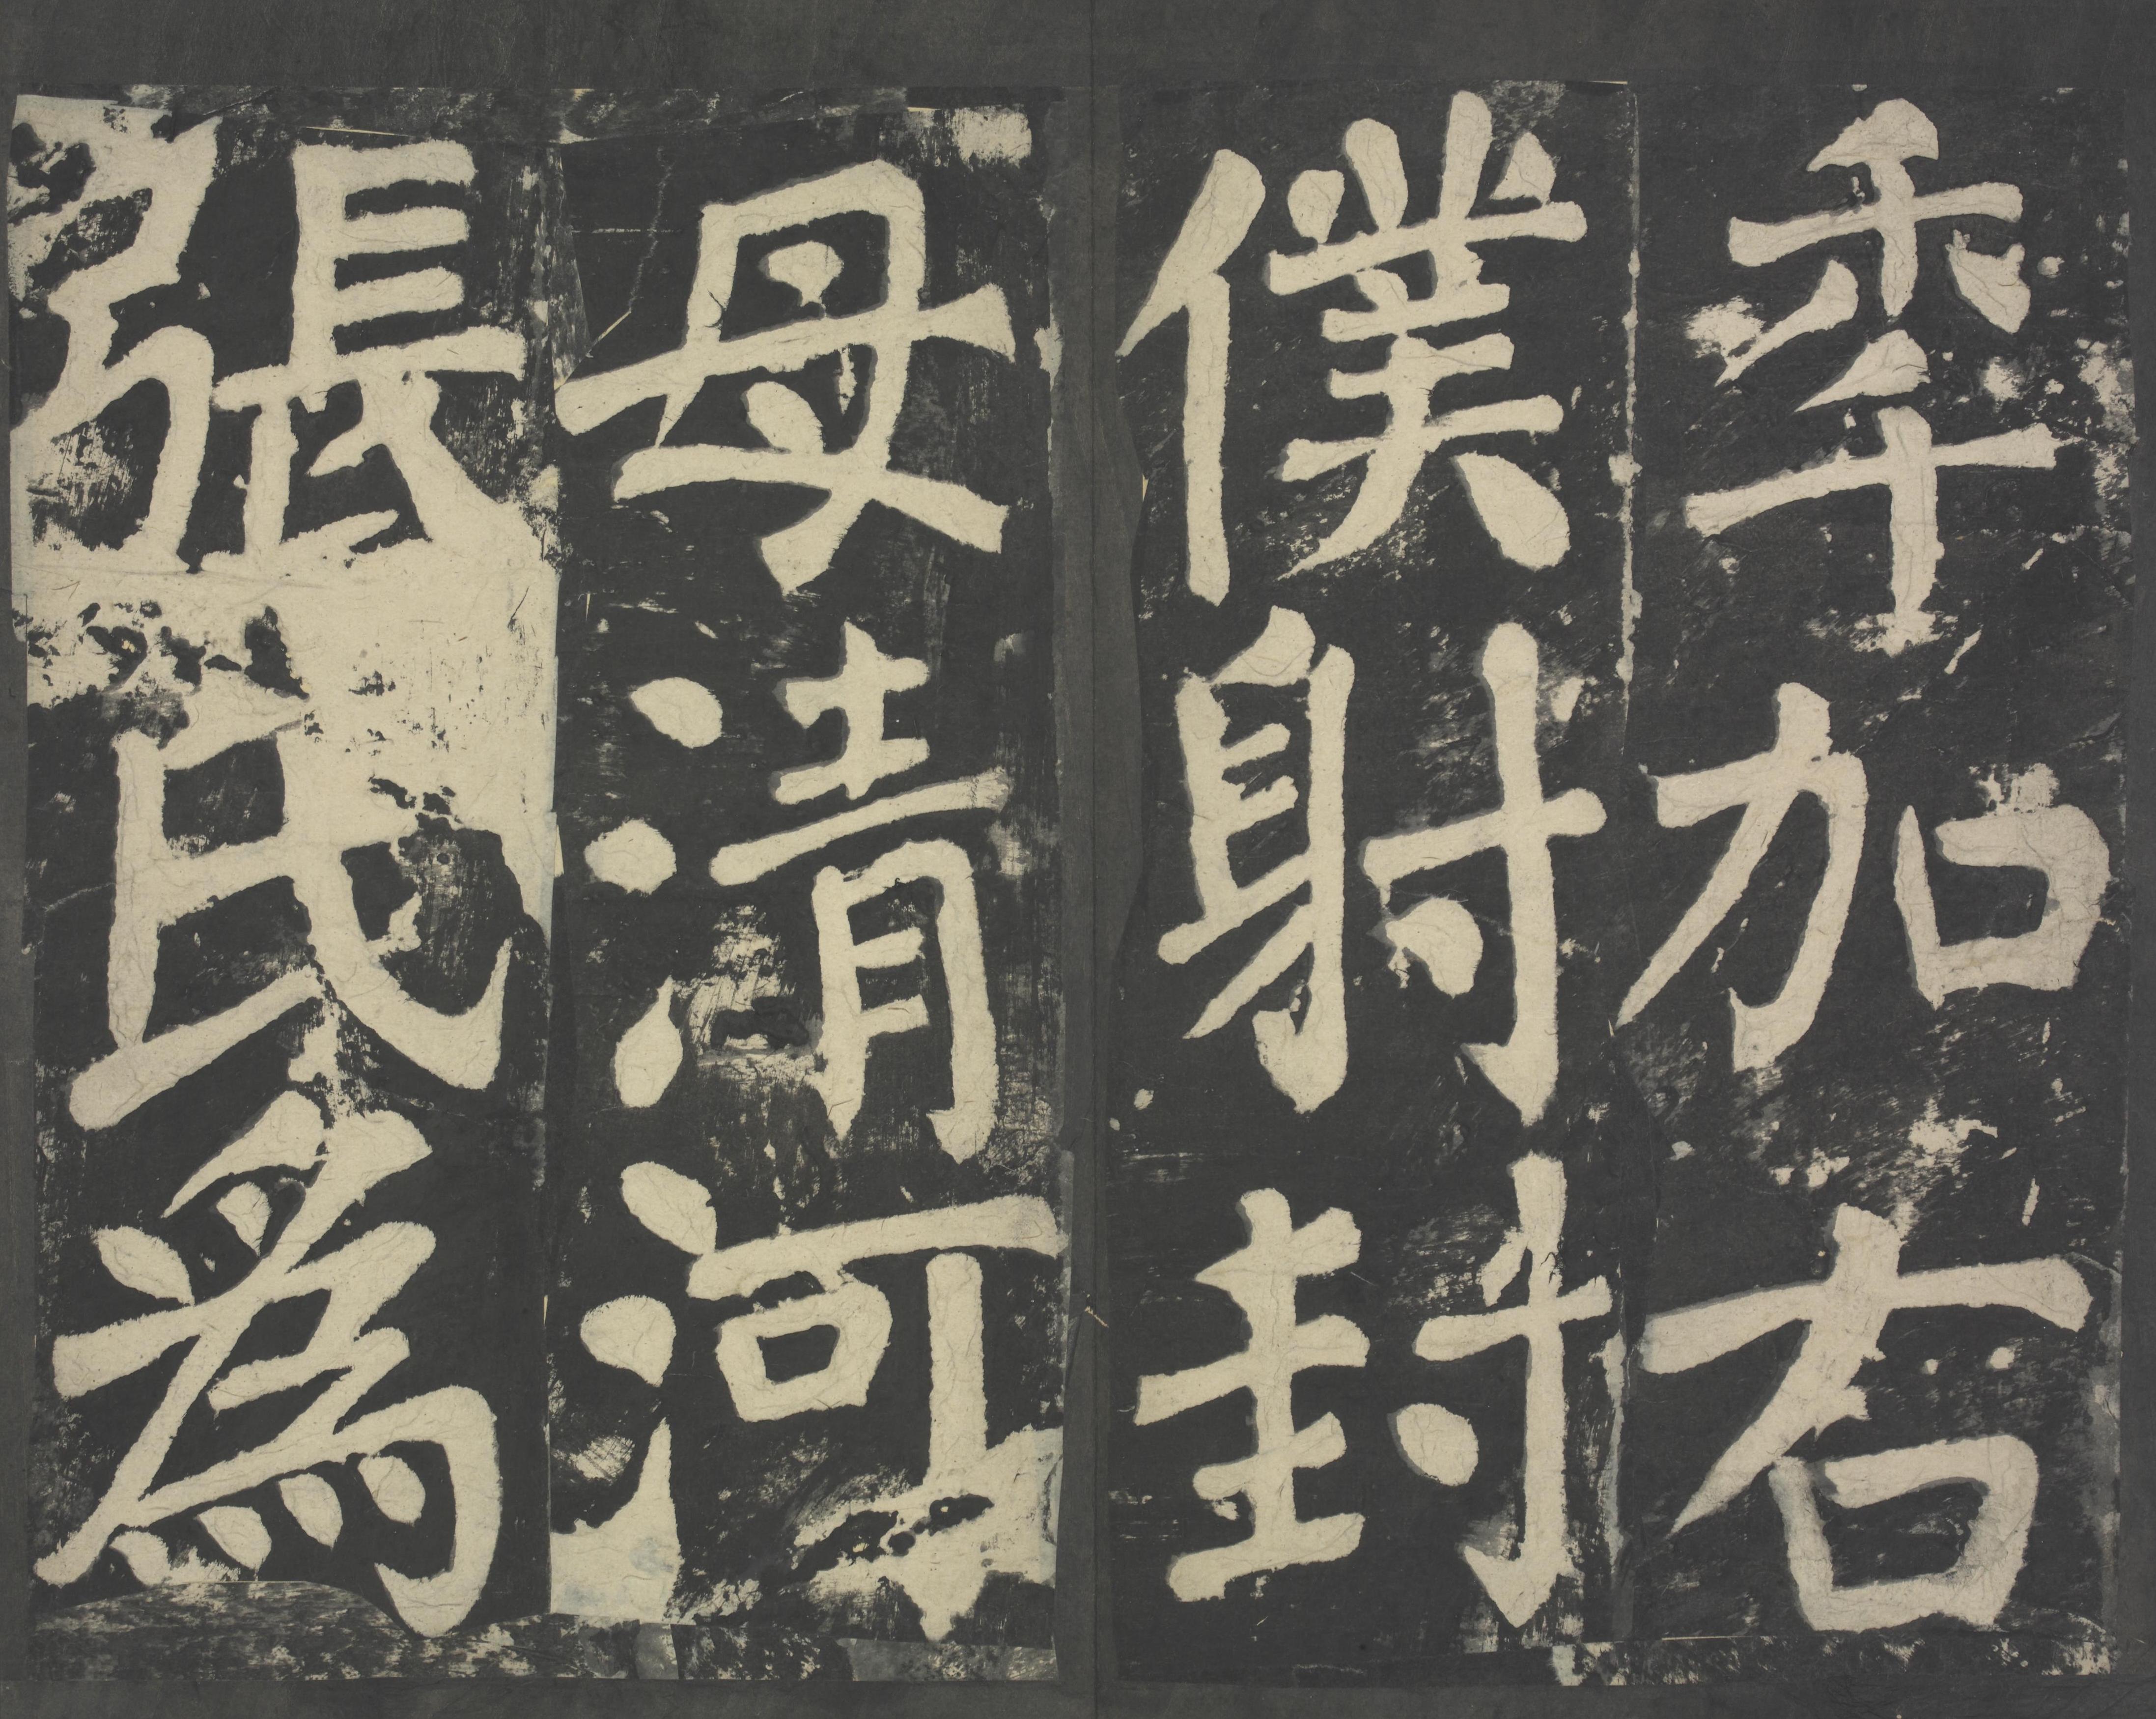 秊加右
僕射封
母清河
張氏爲